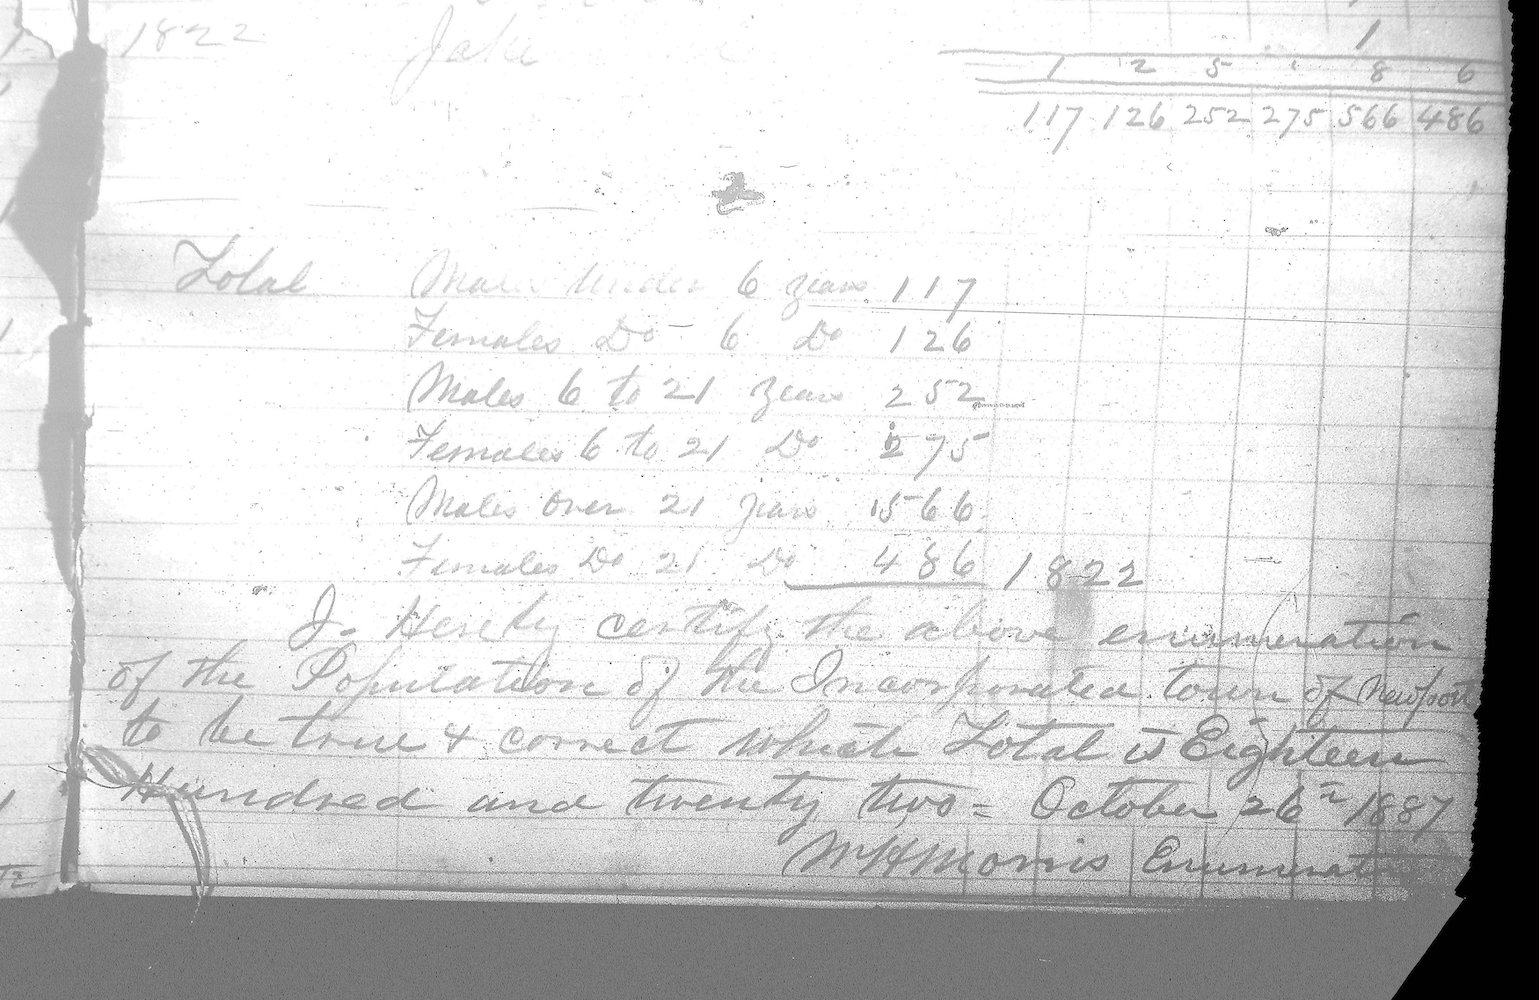 1
1822 Jake
1 2 5 8 6
117 126 252 275 566 486
Total Males Under 6 years 117
Females Do - 6 Do 126
Males 6 to 21 years 252
Females 6 to 21 Do 275
Males over 21 years 566
Females Do 21 Do 486 1822
I. Hereby certify the above enumeration
of the Population of the Incorporated town of Newport
to be true & correct which Total is Eighteen
Hundred and twenty two = October 26th 1887
W H Morris Enumerator